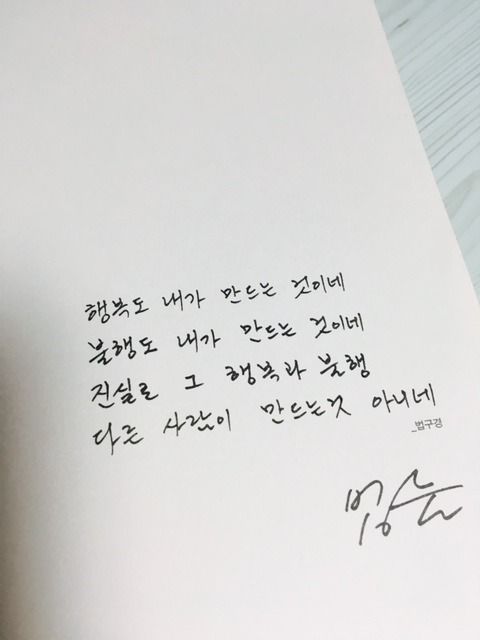 행복도 내가 만드는 것이네
불행도 내가 만드는 것이네
진실로 그 행복과 불행
다른 사람이 만드는것 아니네
_법구경